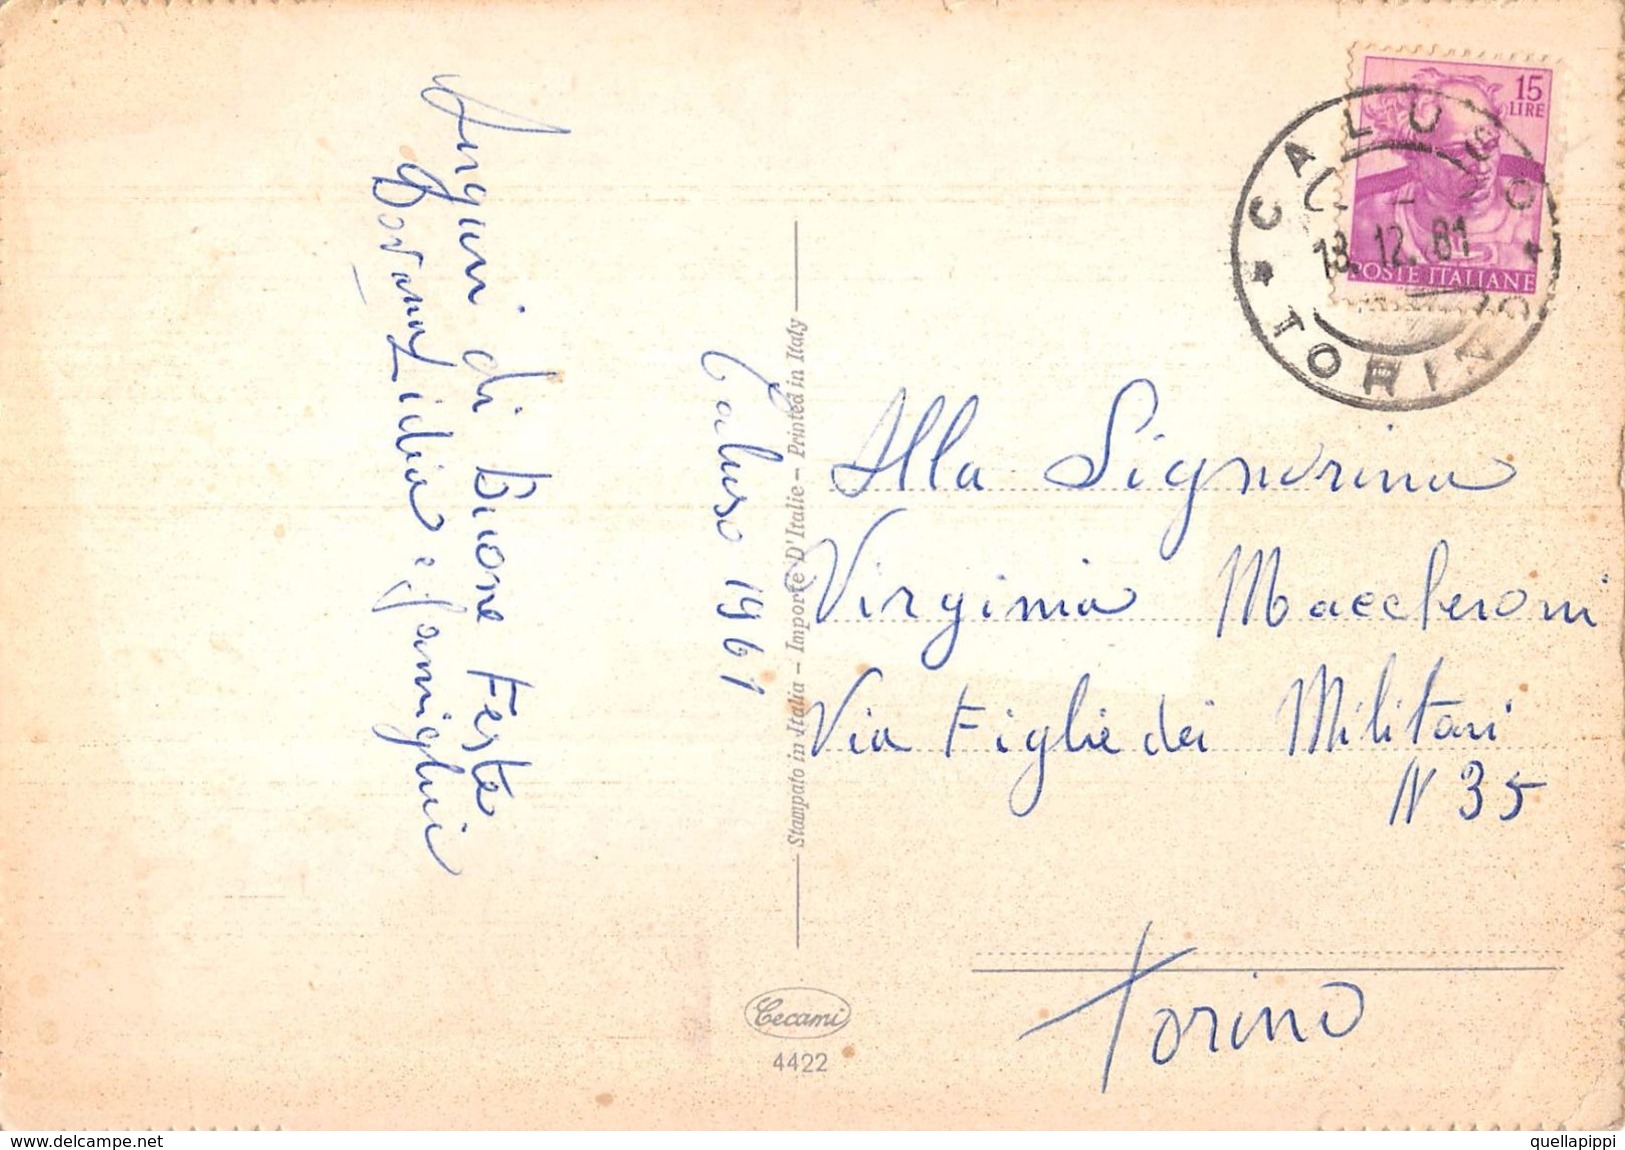 Auguri di Buone Feste
Lidia e famiglia
Caluso 1961
Stampato in Italia - Importé D'Italie - Printed in Italy
Cecami
4422
15
LIRE
POSTE ITALIANE
CALUSO
18.12.61
TORINO
Alla Signorina
Virginia Maccheroni
Via Figlie dei Militari
N 35
Torino
www.delcampe.net
quellapippi